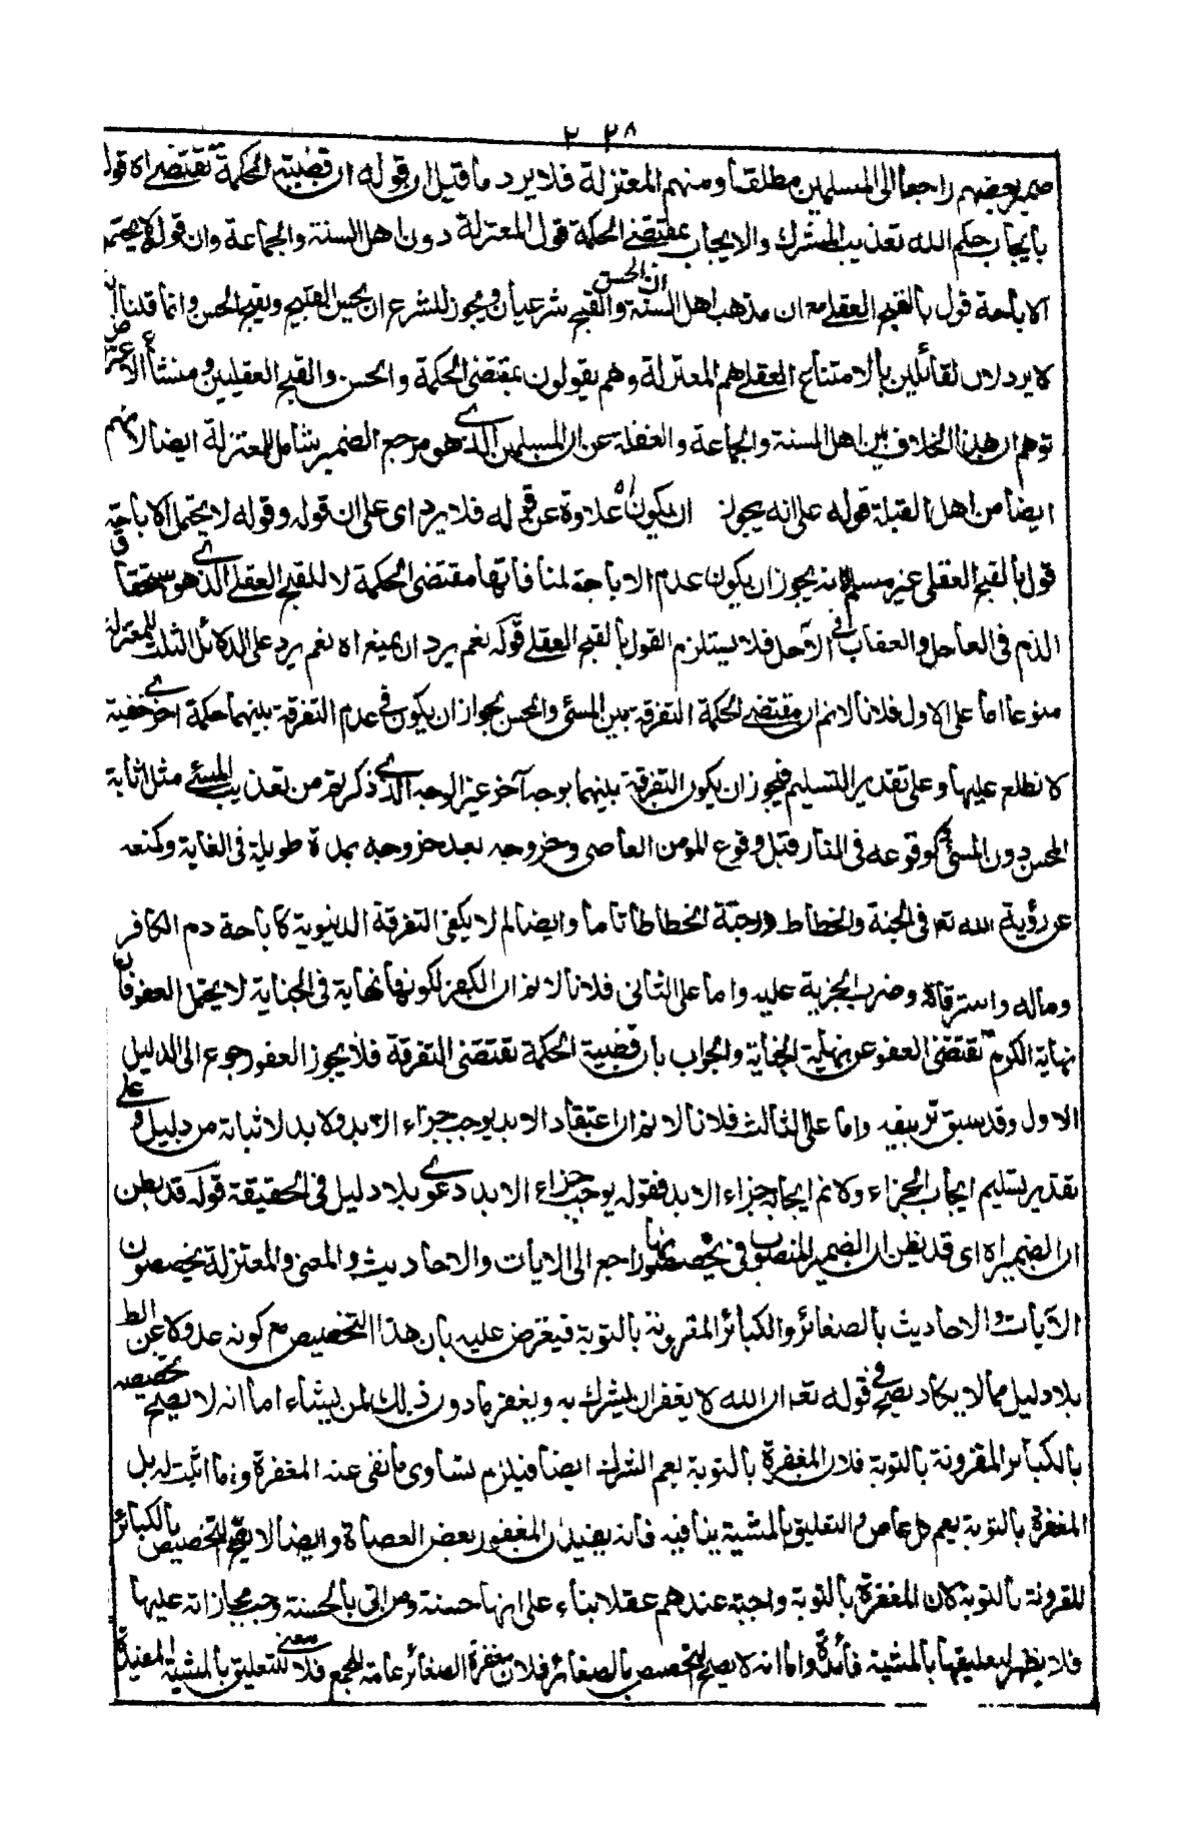 ٢٢٨
ضمير بعضهم راجعا الى المسلمين مطلقا ومنهم المعتزلة فلا يرد ما قيل ان قوله ان قضية الحكمة تقتضى اه قول
بايجاب حكم الله تعذيب المشرك والايجاب بمقتضى الحكمة قول المعتزلة دون اهل السنة والجماعة وان قوله لا يحتمل
الاباحة قول بالقبح العقلى مع ان مذهب اهل السنة ان الحسن والقبح شرعيان ويجوز للشرع ان يحسن القبيح ويقبح الحسن وانما قلنا
لا يرد لان القائلين بالامتناع العقلى هم المعتزلة وهم يقولون بمقتضى الحكمة والحسن والقبح العقليين ومنشأ الاعتراض
توهم ان هذا الخلاف بين اهل السنة والجماعة والغفلة عن ان المسلمين الذى هو مرجع الضمير شامل للمعتزلة ايضا لانهم
ايضا من اهل القبلة قوله على انه يجوز ان يكون اه علاوة عن قوله فلا يرد اى على ان قوله وقوله لا يحتمل الاباحة
قول بالقبح العقلى غير مسلم لانه يجوز ان يكون عدم الاباحة لمنافاتها مقتضى الحكمة لا للقبح العقلى الذى هو استحقاق
الذم فى العاجل والعقاب فى الآجل فلا يستلزم القول بالقبح العقلى قوله نعم يرد ان يمنع اه نعم يرد على الدلائل الثلث للمعتزلة
منوعا اما على الاول فلانا لا نم ان مقتضى الحكمة التفرقة بين المسئ والمحسن لجواز ان يكون فى عدم التفرقة بينهما حكمة اخرى خفية
لا نطلع عليها وعلى تقدير التسليم فيجوز ان يكون التفرقة بينهما بوجه آخر غير الوجه الذى ذكرتم من تعذيب المسئ مثل اثابة
المحسن دون المسئ وكوقوعه فى النار قبل وقوع المومن العاصى وخروجه بعد خروجه بمدة طويلة فى الغاية وكمنعه
عن رؤية الله تع فى الجنة وانحطاط درجته انحطاطا تاما وايضا لم لا يكفى التفرقة الدنيوية كاباحة دم الكافر
وماله واسترقاقه وضرب الجزية عليه واما على الثانى فلانا لا نم ان الكفر لكونها نهاية فى الجناية لا يحتمل العفو فان
نهاية الكرم تقتضى العفو عن نهاية الجناية والجواب بان قضية الحكمة تقتضى التفرقة فلا يجوز العفو رجوع الى الدليل
الاول وقد سبق تزييفه واما على الثالث فلانا لا نم ان اعتقاد الابد يوجب جزاء الابد ولا بد لاثباته من دليل وعلى
تقدير تسليم ايجاب الجزاء ولا نم ايجابه جزاء الابد فقوله يوجب جزاء الابد دعوى بلا دليل فى الحقيقة قوله قد يظن
ان الضمير اه اى قد يظن ان الضمير المنصوب فى يخصصونها راجع الى الايات والاحاديث والمعنى والمعتزلة يخصصون
الآيات والاحاديث بالصغائر والكبائر المقرونة بالتوبة فيعترض عليه بان هذا التخصيص مع كونه عدولا عن الظ
بلا دليل مما لا يكاد يصح فى قوله تعه ان الله لا يغفر ان يشرك به ويغفر ما دون ذلك لمن يشاء اما انه لا يصح تخصيصه
بالكبائر المقرونة بالتوبة فلان المغفرة بالتوبة يعم الشرك ايضا فيلزم تساوى ما نفى عنه المغفرة وما اثبت له بل
المغفرة بالتوبة يعم كل عاص والتعليق بالمشية ينافيه فانه يفيد ان المغفور بعض العصاة وايضا لا يصح التخصيص بالكبائر
المقرونة بالتوبة لان المغفرة بالتوبة واجبة عندهم عقلا بناء على انها حسنة ومن اتى بالحسنة وجب مجازاته عليها
فلا يظهر لتعليقها بالمشية فائدة واما انه لا يصح التخصيص بالصغائر فلان مغفرة الصغائر عامة للجميع فلا معنى للتعليق بالمشية المفيدة